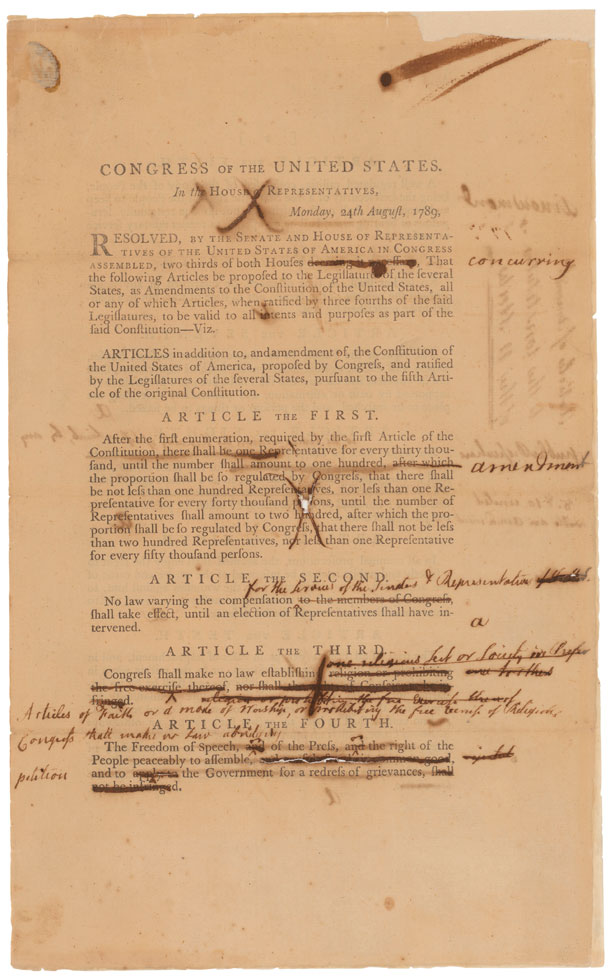 CONGRESS OF THE UNITED STATES.
In the HOUSE of REPRESENTATIVES,
Monday, 24th Auguſt, 1789,
RESOLVED, BY THE SENATE AND HOUSE OF REPRESENTA-
TIVES OF THE UNITED STATES OF AMERICA IN CONGRESS
ASSEMBLED, two thirds of both Houſes concurring That
the following Articles be propoſed to the Legiſlatures of the ſeveral
States, as Amendments to the Conſtitution of the United States, all
or any of which Articles, when ratified by three fourths of the ſaid
Legiſlatures, to be valid to all intents and purpoſes as part of the
ſaid Conſtitution—Viz.
ARTICLES in addition to, and amendment of, the Conſtitution of
the United States of America, propoſed by Congreſs, and ratified
by the Legiſlatures of the ſeveral States, purſuant to the fifth Arti-
cle of the original Conſtitution.
ARTICLE THE FIRST.
After the firſt enumeration, required by the firſt Article of the
Conſtitution, there ſhall be one Repreſentative for every thirty thou-
ſand, until the number ſhall amount to one hundred, after which amendment
the proportion ſhall be ſo regulated by Congreſs, that there ſhall
be not leſs than one hundred Repreſentatives, nor leſs than one Re-
preſentative for every forty thouſand perſons, until the number of
Repreſentatives ſhall amount to two hundred, after which the pro-
portion ſhall be ſo regulated by Congreſs, that there ſhall not be leſs
than two hundred Repreſentatives, nor leſs than one Repreſentative
for every fifty thouſand perſons.
ARTICLE THE SECOND.
for the services of the Senators & Representatives
No law varying the compenſation to the members of Congreſs,
ſhall take effect, until an election of Repreſentatives ſhall have in-
tervened.
a
ARTICLE THE THIRD.
one religious Sect or Society in
Congreſs ſhall make no law eſtabliſhing religion or prohibiting
the free exerciſe thereof, nor ſhall the
fringed.
Articles of Faith or a mode of Worship, or prohibiting the free exercise of Religion,
ARTICLE THE FOURTH.
Congress shall make no law abridging
The Freedom of Speech, and of the Preſs, and the right of the
People peaceably to aſſemble,
petition
and to the Government for a redreſs of grievances, ſhall
not be infringed.